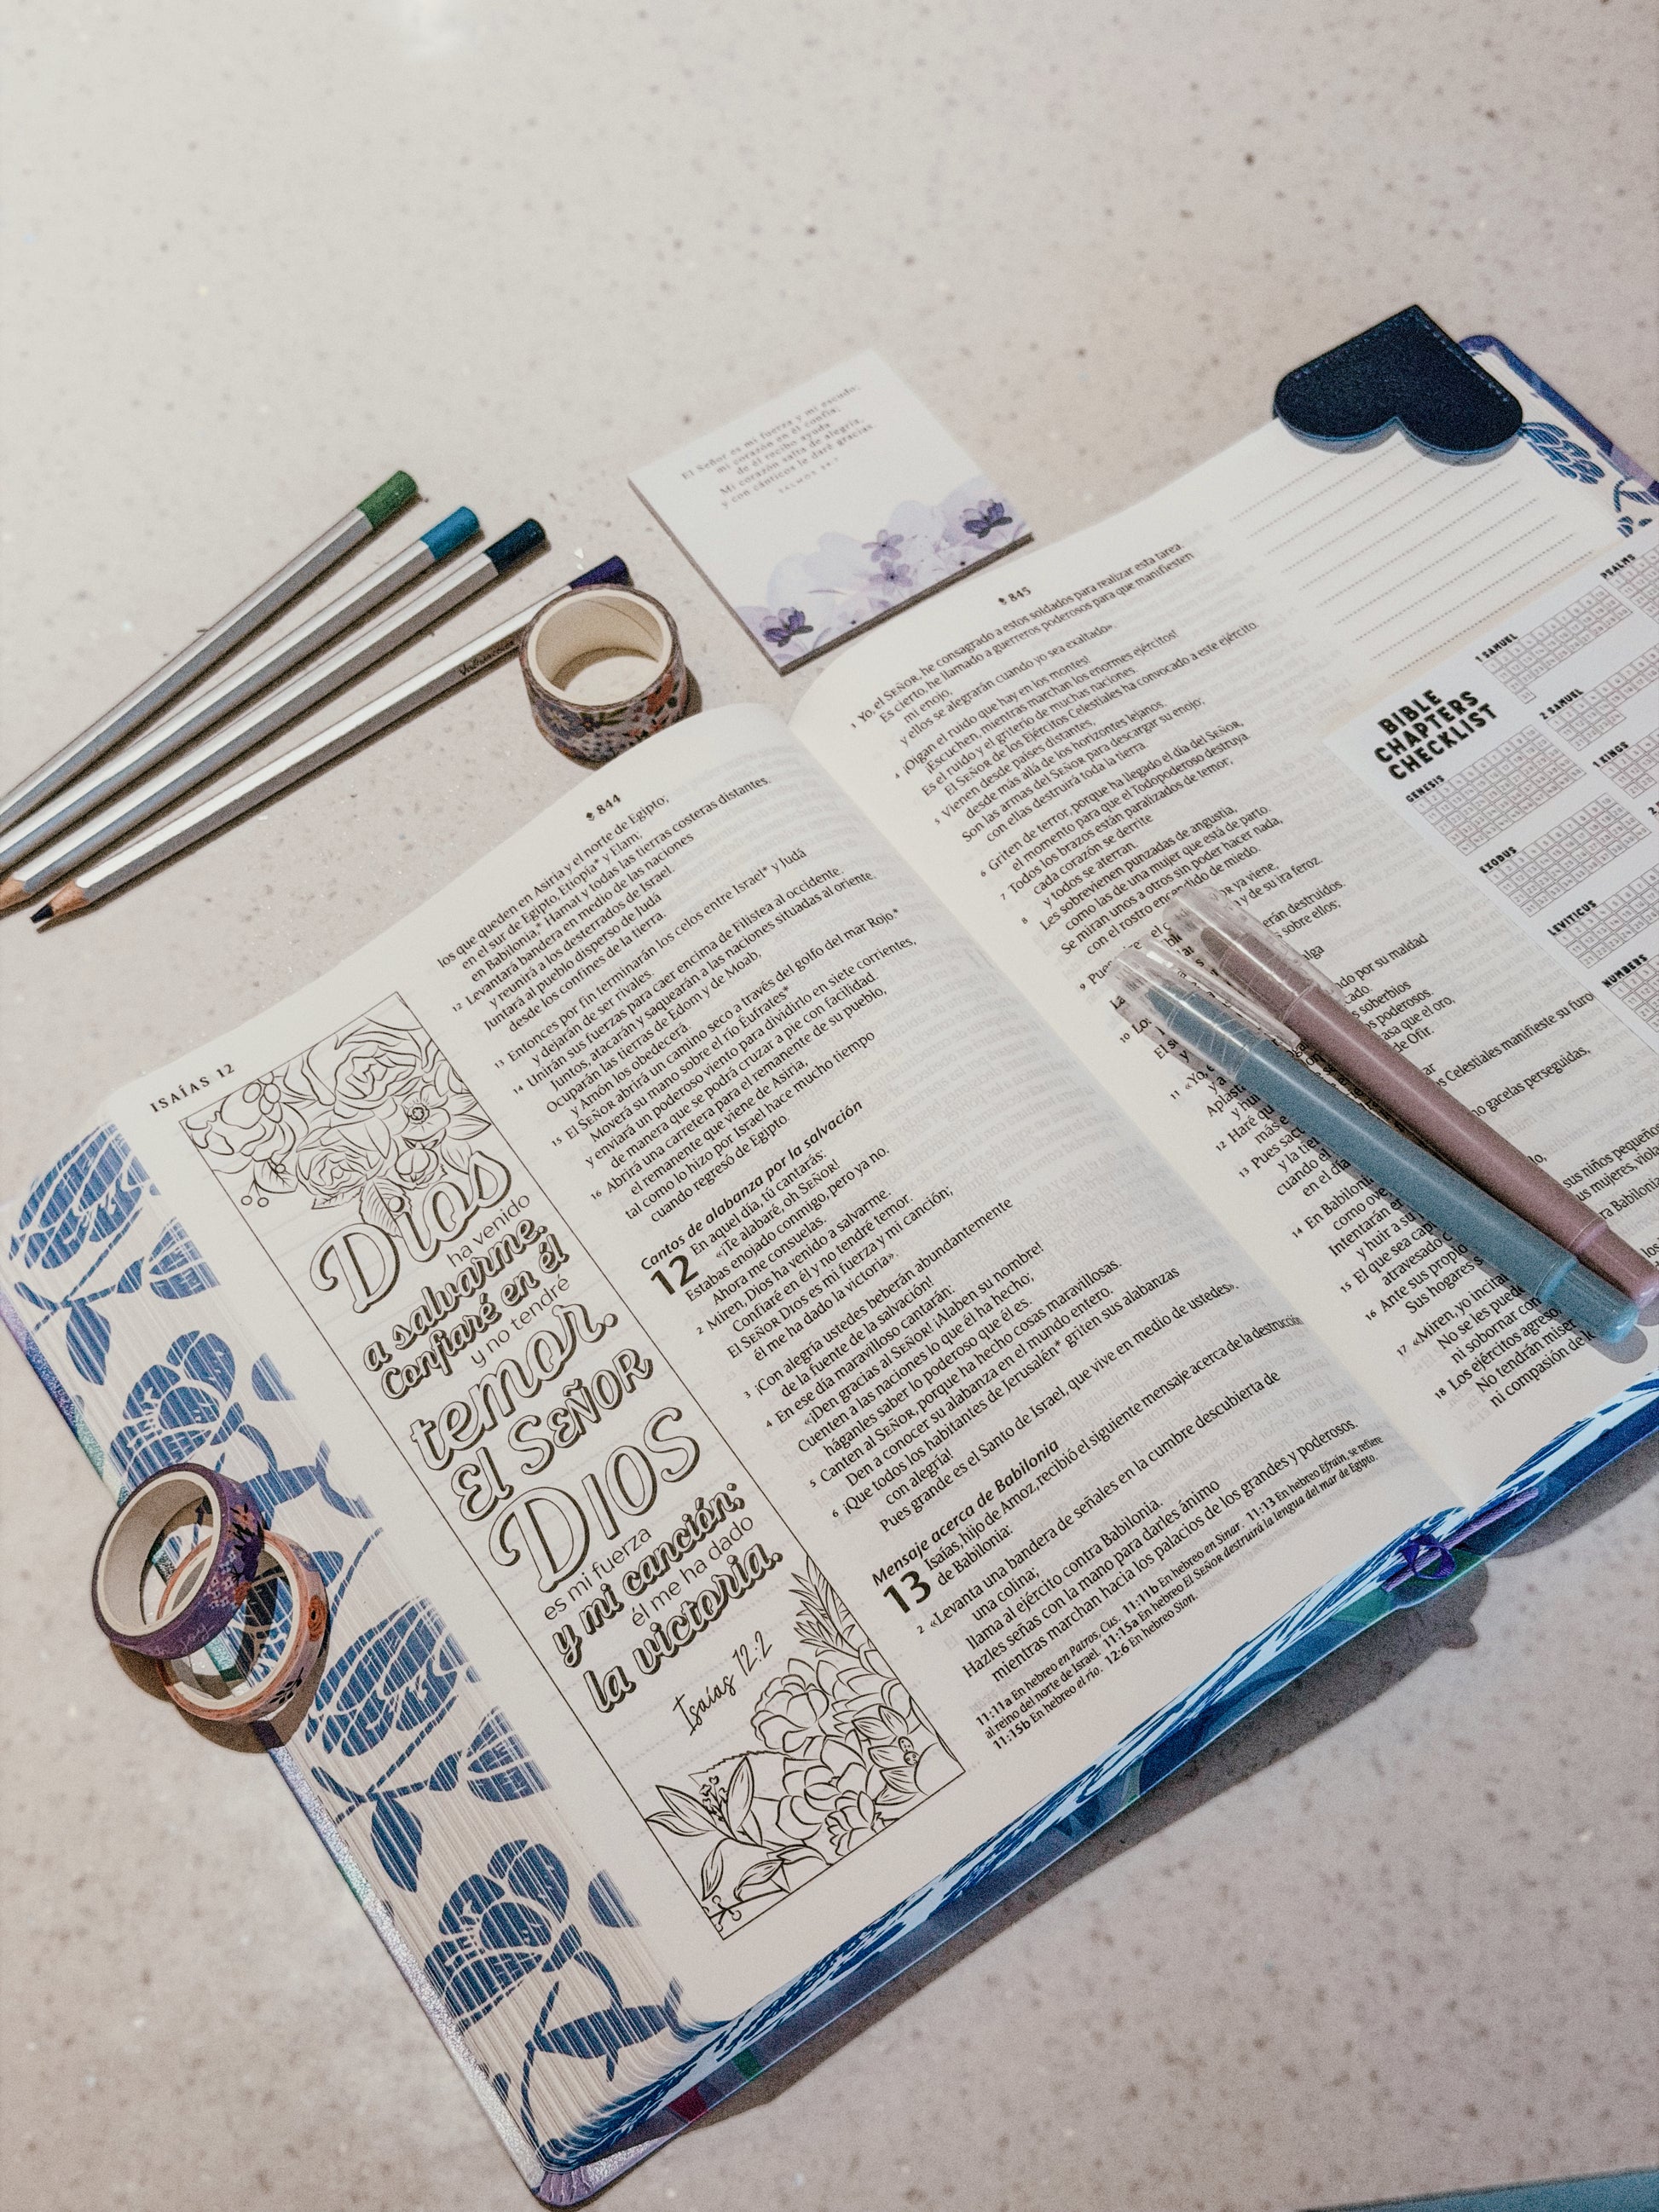 El Señor es mi fuerza y mi escudo;
mi corazón en él confía;
de él recibo ayuda.
Mi corazón salta de alegría,
y con cánticos le daré gracias.
ISAÍAS 12
844
Dios
ha venido
a salvarme.
Confiaré en él
y no tendré
temor.
El SEÑOR
DIOS
es mi fuerza
y mi canción;
él me ha dado
la victoria.
Isaías 12:2
los que queden en Asiria y el norte de Egipto;
en el sur de Egipto, Etiopía* y Elam;
en Babilonia,* Hamat y todas las tierras costeras distantes.
12 Levantará bandera en medio de las naciones
y reunirá a los desterrados de Israel.
Juntará al pueblo disperso de Judá
desde los confines de la tierra.
13 Entonces por fin terminarán los celos entre Israel* y Judá
y dejarán de ser rivales.
14 Unirán sus fuerzas para caer encima de Filistea al occidente.
Juntos, atacarán y saquearán a las naciones situadas al oriente.
Ocuparán las tierras de Edom y de Moab,
y Amón los obedecerá.
15 El SEÑOR abrirá un camino seco a través del golfo del mar Rojo.*
Moverá su mano sobre el río Éufrates*
y enviará un poderoso viento para dividirlo en siete corrientes,
de manera que se podrá cruzar a pie con facilidad.
16 Abrirá una carretera para el remanente de su pueblo,
el remanente que viene de Asiria,
tal como lo hizo por Israel hace mucho tiempo
cuando regresó de Egipto.
Cantos de alabanza por la salvación
12 En aquel día, tú cantarás:
«¡Te alabaré, oh SEÑOR!
Estabas enojado conmigo, pero ya no.
Ahora me consuelas.
2 Miren, Dios ha venido a salvarme.
Confiaré en él y no tendré temor.
El SEÑOR DIOS es mi fuerza y mi canción;
él me ha dado la victoria».
3 ¡Con alegría ustedes beberán abundantemente
de la fuente de la salvación!
4 En ese día maravilloso cantarán:
«¡Den gracias al SEÑOR! ¡Alaben su nombre!
Cuenten a las naciones lo que él ha hecho;
háganles saber lo poderoso que él es.
5 Canten al SEÑOR, porque ha hecho cosas maravillosas.
Den a conocer su alabanza en el mundo entero.
6 ¡Que todos los habitantes de Jerusalén* griten sus alabanzas
con alegría!
Pues grande es el Santo de Israel, que vive en medio de ustedes».
Mensaje acerca de Babilonia
13 Isaías, hijo de Amoz, recibió el siguiente mensaje acerca de la destrucción
de Babilonia:
2 «Levanta una bandera de señales en la cumbre descubierta de
una colina;
llama al ejército contra Babilonia.
Hazles señas con la mano para darles ánimo
mientras marchan hacia los palacios de los grandes y poderosos.
11:11a En hebreo en Patros, Cus. 11:11b En hebreo en Sinar. 11:13 En hebreo Efraín, se refiere
al reino del norte de Israel. 11:15a En hebreo El SEÑOR destruirá la lengua del mar de Egipto.
11:15b En hebreo el río. 12:6 En hebreo Sion.
845
3 Yo, el SEÑOR, he consagrado a estos soldados para realizar esta tarea.
Es cierto, he llamado a guerreros poderosos para que manifiesten
mi enojo,
y ellos se alegrarán cuando yo sea exaltado».
4 ¡Oigan el ruido que hay en los montes!
¡Escuchen, mientras marchan los enormes ejércitos!
Es el ruido y el griterío de muchas naciones.
El SEÑOR de los Ejércitos Celestiales ha convocado a este ejército.
5 Vienen desde países distantes,
desde más allá de los horizontes lejanos.
Son las armas del SEÑOR para descargar su enojo;
con ellas destruirá toda la tierra.
6 Griten de terror, porque ha llegado el día del SEÑOR,
el momento para que el Todopoderoso destruya.
7 Todos los brazos están paralizados de temor;
cada corazón se derrite
8 y todos se aterran.
Les sobrevienen punzadas de angustia,
como las de una mujer que está de parto.
Se miran unos a otros sin poder hacer nada,
con el rostro encendido de miedo.
9 ya viene,
y de su ira feroz.
erán destruidos.
10
11 «Yo,
por su maldad
soberbios
poderosos.
que el oro,
de Ofir.
12 Haré
Celestiales manifieste su furor
13 Pues
gacelas perseguidas,
cuando el
en el día
14 En Babilonia
como ove
Intentarán
y huir a su
15 El que sea
atravesado
16 Ante sus propio
Sus hogares
sus niños pequeños
mujeres,
17 «Miren, yo incitar
No se les pued
ni sobornar con
18 Los ejércitos
No tendrán
ni compasión de
BIBLE
CHAPTERS
CHECKLIST
GENESIS
EXODUS
LEVITICUS
NUMBERS
1 SAMUEL
2 SAMUEL
1 KINGS
PSALMS